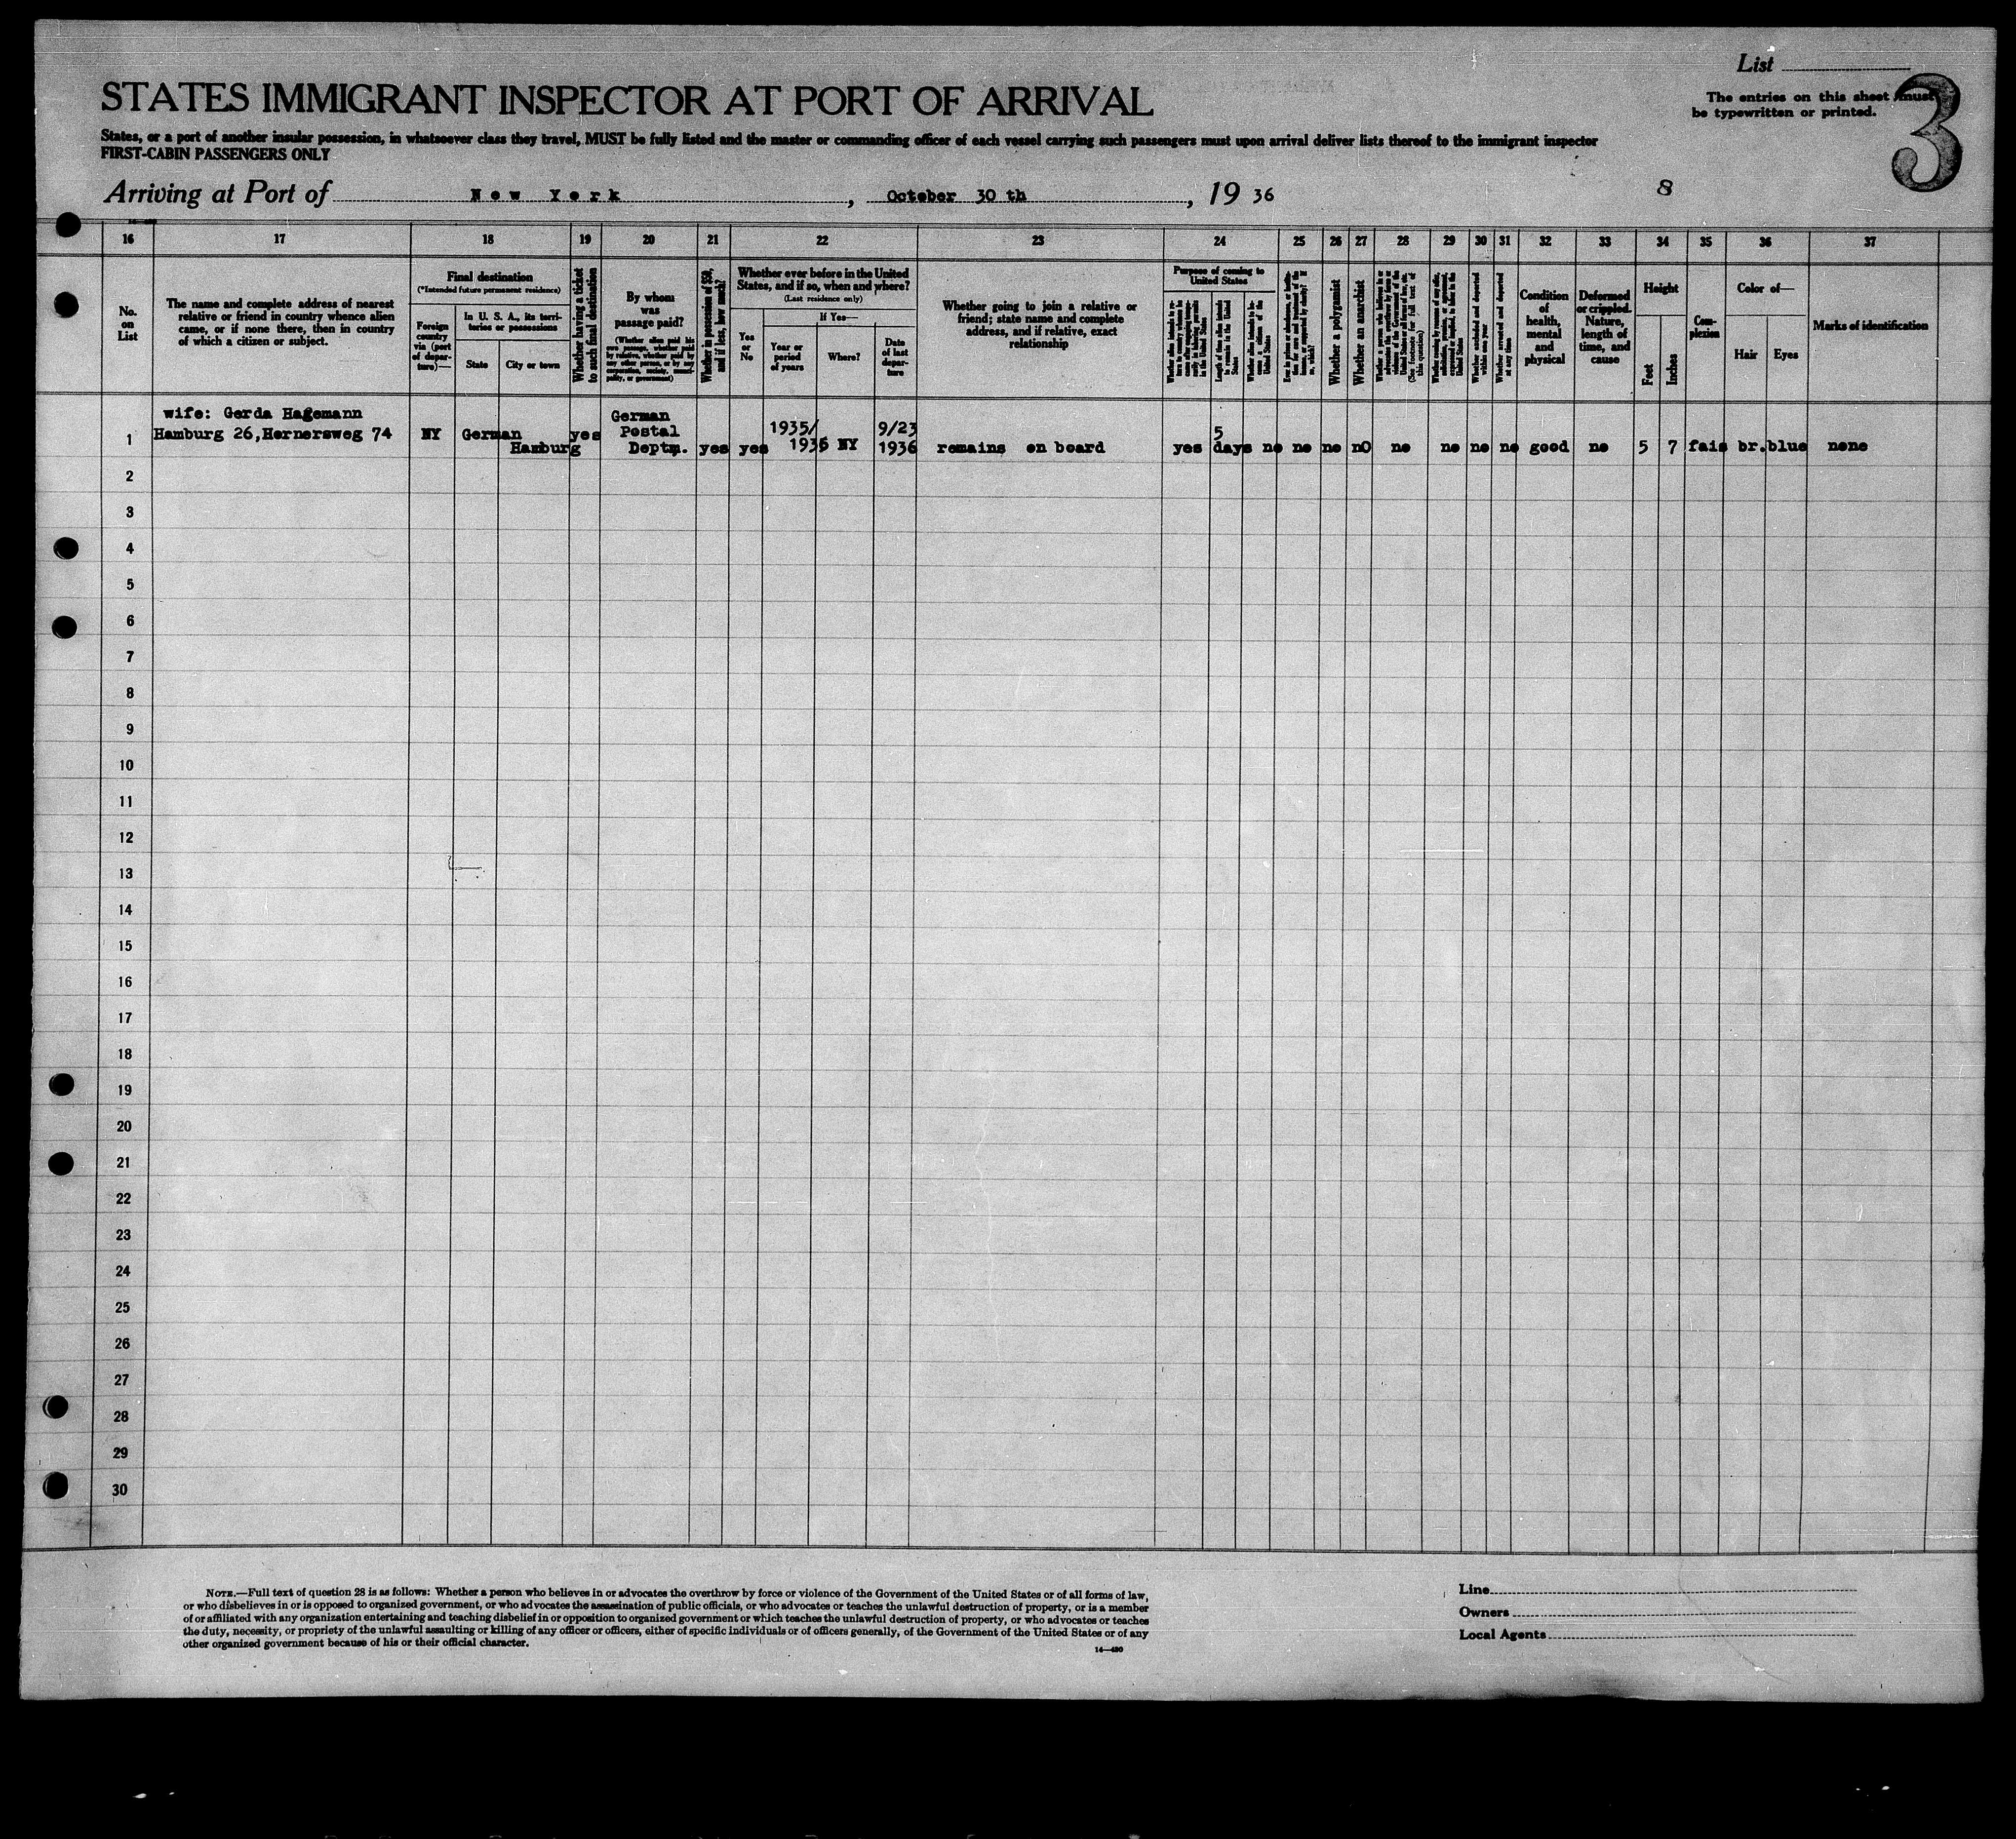 List
STATES IMMIGRANT INSPECTOR AT PORT OF ARRIVAL
The entries on this sheet must
be typewritten or printed.
3
States, or a port of another insular possession, in whatsoever class they travel, MUST be fully listed and the master or commanding officer of each vessel carrying such passengers must upon arrival deliver lists thereof to the immigrant inspector
FIRST-CABIN PASSENGERS ONLY
Arriving at Port of New York, October 30 th, 19 36
8
16 17 18 19 20 21 22 23 24 25 26 27 28 29 30 31 32 33 34 35 36 37
No.
on
List
The name and complete address of nearest
relative or friend in country whence alien
came, or if none there, then in country
of which a citizen or subject.
Final destination
(*Intended future permanent residence)
Foreign
country
via (port
of depar-
ture)—
In U. S. A., its terri-
tories or possessions
State
City or town
Whether having a ticket
to such final destination
By whom
was
passage paid?
(Whether alien paid his
own passage, whether paid
by relative, whether paid by
any other person, or by any
corporation, society, munici-
pality, or government)
Whether in possession of $50,
and if less, how much?
Whether ever before in the United
States, and if so, when and where?
(Last residence only)
Yes
or
No
If Yes—
Year or
period
of years
Where?
Date
of last
depar-
ture
Whether going to join a relative or
friend; state name and complete
address, and if relative, exact
relationship
Purpose of coming to
United States
Length of time alien intends
to remain in the United
States
Whether alien intends to be-
come a citizen of the
United States
Whether a polygamist
Whether an anarchist
Whether arrested and deported
within one year
Whether arrested and deported
at any time
Condition
of
health,
mental
and
physical
Deformed
or crippled.
Nature,
length of
time, and
cause
Height
Feet
Inches
Com-
plexion
Color of—
Hair
Eyes
Marks of identification
1
wife: Gerda Hagemann
Hamburg 26,Hornersweg 74
NY
German
Hamburg
yes
German
Postal
Deptm.
yes
yes
1935/
1936
NY
9/23
1936
remains on board
yes
5
days
no
no
no
nO
no
no
no
no
good
no
5
7
fair
br.
blue
none
2
3
4
5
6
7
8
9
10
11
12
13
14
15
16
17
18
19
20
21
22
23
24
25
26
27
28
29
30
NOTE.—Full text of question 28 is as follows: Whether a person who believes in or advocates the overthrow by force or violence of the Government of the United States or of all forms of law,
or who disbelieves in or is opposed to organized government, or who advocates the assassination of public officials, or who advocates or teaches the unlawful destruction of property, or is a member
of or affiliated with any organization entertaining and teaching disbelief in or opposition to organized government or which teaches the unlawful destruction of property, or who advocates or teaches
the duty, necessity, or propriety of the unlawful assaulting or killing of any officer or officers, either of specific individuals or of officers generally, of the Government of the United States or of any
other organized government because of his or their official character.
14—480
Line
Owners
Local Agents